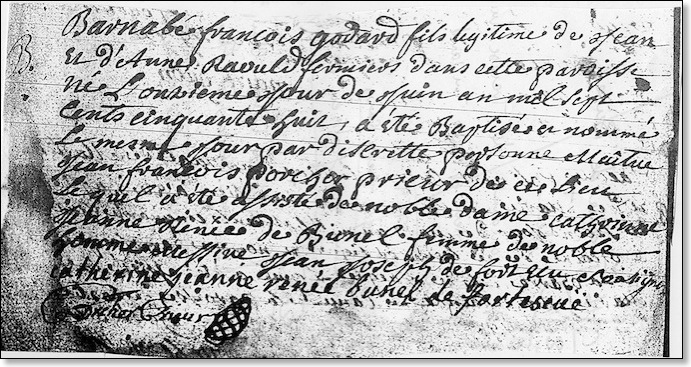 B.
Barnabé françois godard fils legitime de Jean
et d'Anne Raould fermiers dans cette paroisse
né L'onzieme Jour de Juin an mil sept
cents cinquante huit, a été Baptisé et nommé
Le mesme Jour par discrette personne Maître
Jean françois porcher prieur de ce Lieu
Lequel a été assisté de noble dame catherine
jeanne Renée de Bunel femme de noble
homme messire Jean Joseph de fort
catherine jeanne renée Bunel de fortescue